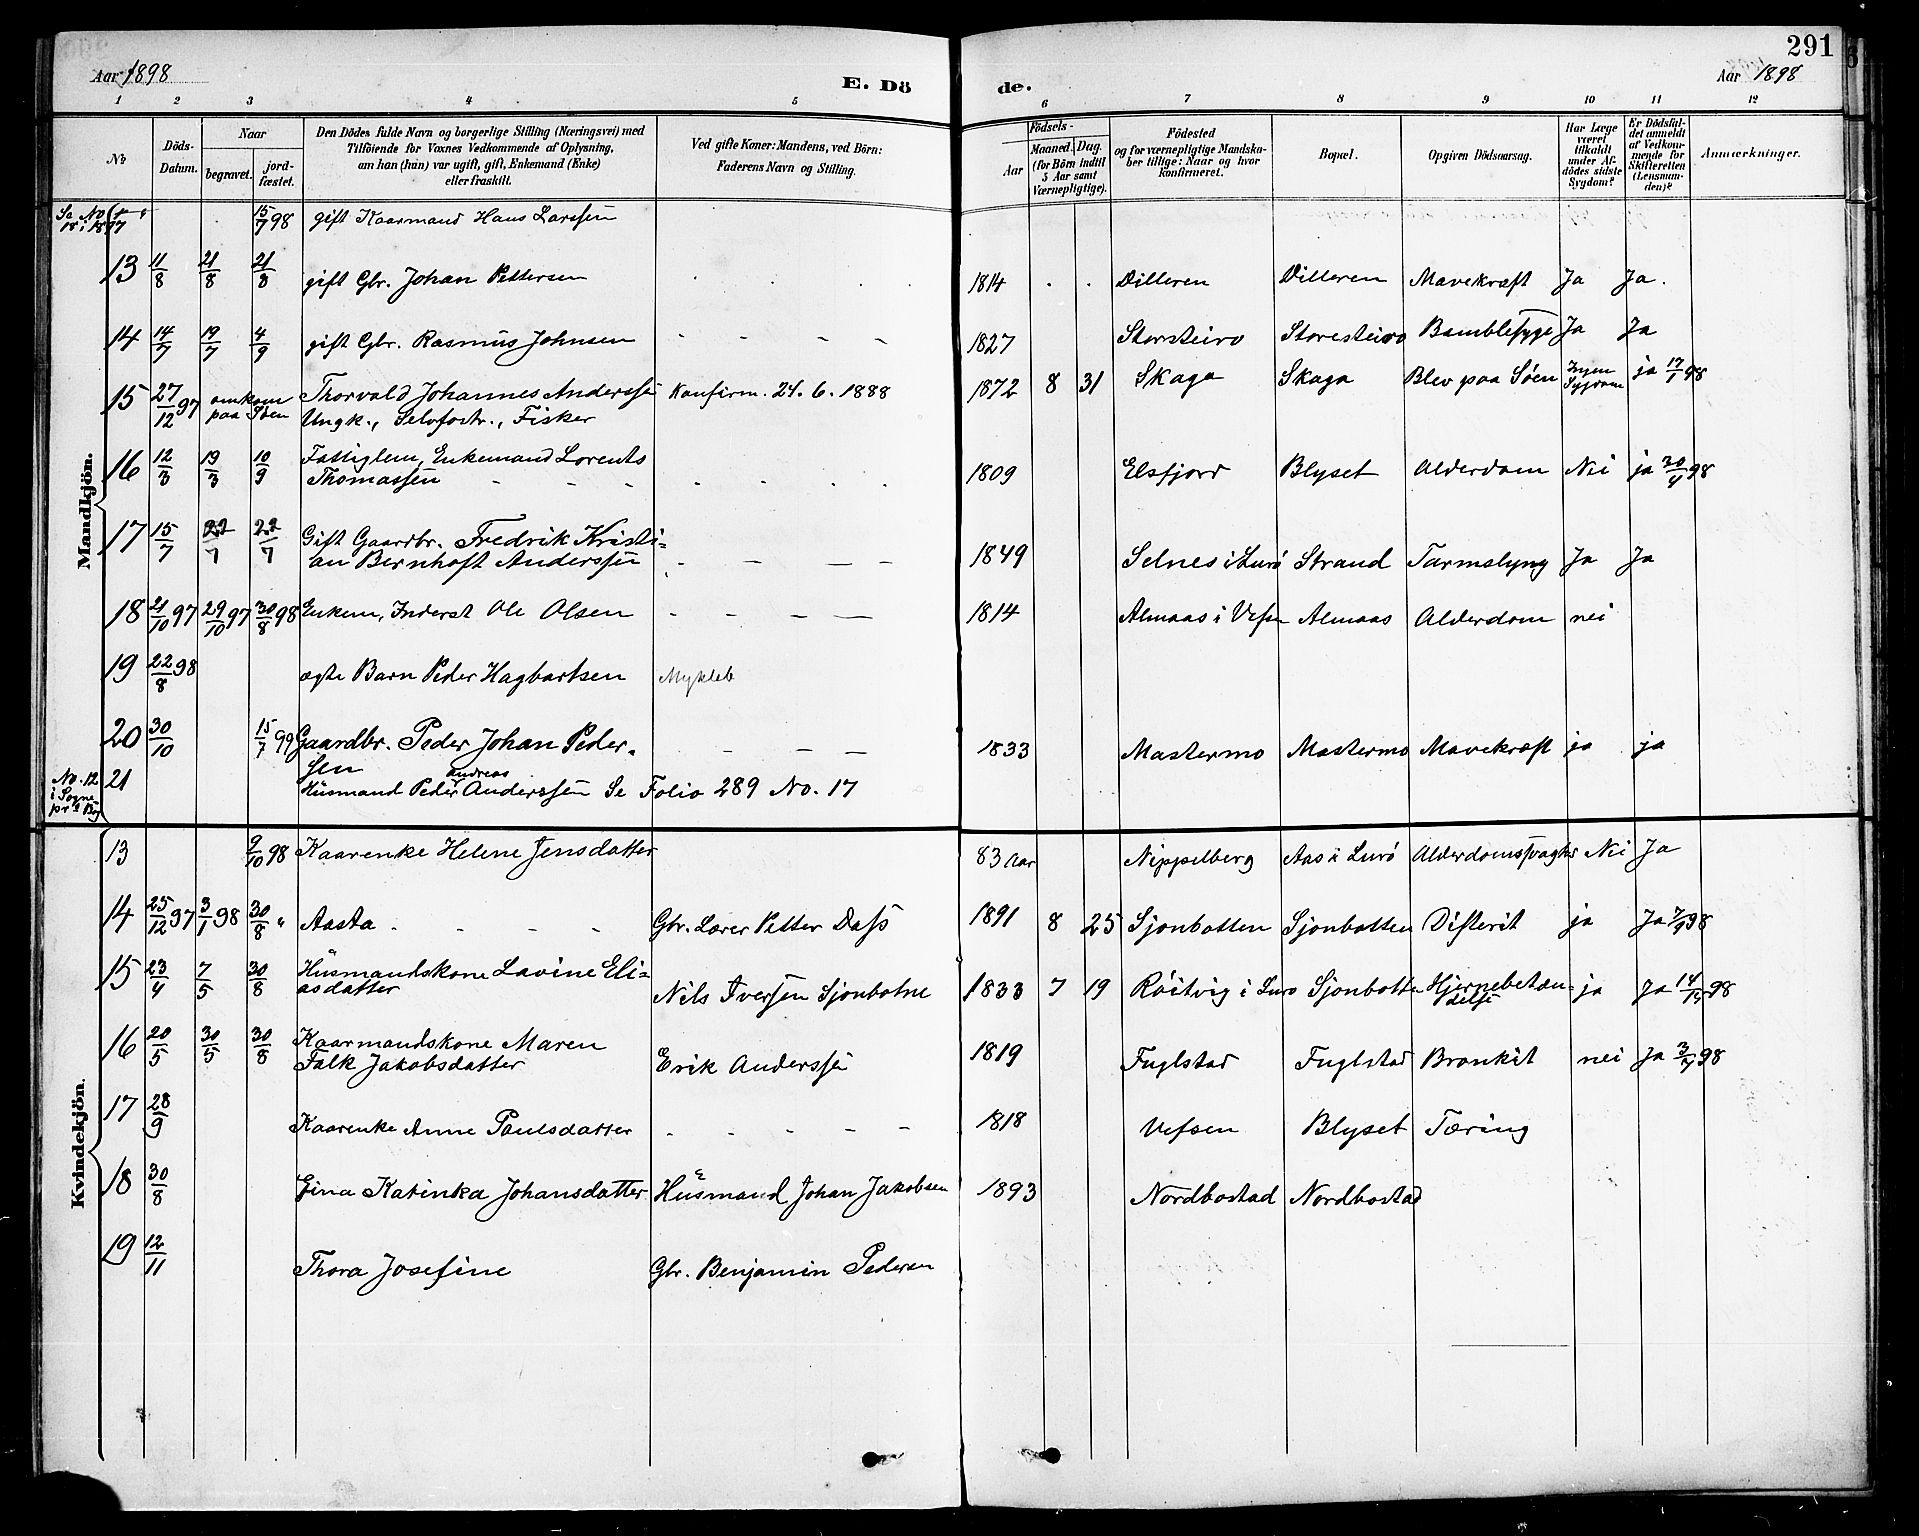 291
Aar 1898
E. Dö
de.
Aar 1898
1 2 3 4 5 6 7 8 9 10 11 12
No
Döds-Datum.
Naar
begravet.
jordfæstet.
Den Dödes fulde Navn og borgerlige Stilling (Næringsvei) med
Tilföiende for Voxnes Vedkommende af Oplysning,
om han (hun) var ugift, gift, Enkemand (Enke)
eller fraskilt.
Ved gifte Koner: Mandens, ved Börn:
Faderens Navn og Stilling.
Födsels-
Aar
Maaned. Dag.
(for Börn indtil
5 Aar samt
Værnepligtige).
Födested
og for værnepligtige Mandska-
ber tillige: Naar og hvor
konfirmeret.
Bopæl.
Opgiven Dödsaarsag.
Har Læge
været
tilkaldt
under Af-
dödes sidste
Sygdom?
Er Dödsfal-
det anmeldt
af Vedkom-
mende for
Skifteretten
(Lensman-
den)?
Anmærkninger.
Mandkjön.
Se No 18 i 1897 15/7 98 gift Kaarmand Hans Larssen
13 11/8 21/8 21/8 gift Gbr. Johan Pettersen 1814 Dilleren Dilleren Mavekræft Ja Ja.
14 14/7 19/7 4/9 gift Gbr. Rasmus Johnsen 1827 Storsteiro Storesteiro Bamblesyge Ja Ja
15 27/12 97 omkom paa Søen Thorvald Johannes Anderssen Konfirm. 24. 6. 1888 1872 8 31 Skaga Skaga Blev paa Søen Ingen Sygdom ja 17/1 98
Ungk., Selvfostr., Fisker
16 12/3 19/3 10/9 Fattiglem, Enkemand Lorents 1809 Elsfjord Blyset Alderdom Nei ja 20/4 98
Thomassen
17 15/7 22/7 22/7 Gift Gaardbr. Fredrik Kristi- 1849 Selnes i Lurö Strand Tarmslyng Ja Ja
an Bernhoft Anderssen
18 21/10 97 29/10 97 30/8 98 Enkem, Inderst Ole Olsen 1814 Almaas i Vefsn Almaas Alderdom nei
19 22/8 98 ægte Barn Peder Hagbartsen Mykleb
20 30/10 15/7 99 Gaardbr. Peder Johan Peder- 1833 Mastermo Mastermo Mavekræft ja ja
sen
No. 12 i Sogne pr s Bog 21 Husmand Peder Andreas Anderssen Se Folio 289 No. 17
Kvindekjön.
13 9/10 98 Kaarenke Helene Jensdatter 83 Aar Nippelberg Aas i Lurö Alderdomssvaghed Nei Ja
14 25/12 97 3/1 98 30/8 " Aasta Gbr. Lærer Petter Dass 1891 8 25 Sjonbotten Sjonbotten Difterit ja Ja 7/1 98
15 23/4 7/5 30/8 Husmandskone Lavine Eli- Nils Iversen Sjonbotne 1833 7 19 Röitvig i Lurö Sjonbotten Hjernebetæn- ja Ja 98
asdatter delse
16 20/5 30/5 30/8 Kaarmandskone Maren Erik Anderssen 1819 Fuglstad Fuglstad Bronkit nei Ja 98
Falk Jakobsdatter
17 28/9 Kaarenke Anne Paulsdatter 1818 Vefsen Blyset Tæring
18 30/8 Gina Katinka Johansdatter Husmand Johan Jakobsen 1893 Nordbostad Nordbostad
19 12/11 Thora Josefine Gbr. Benjamin Pedersen